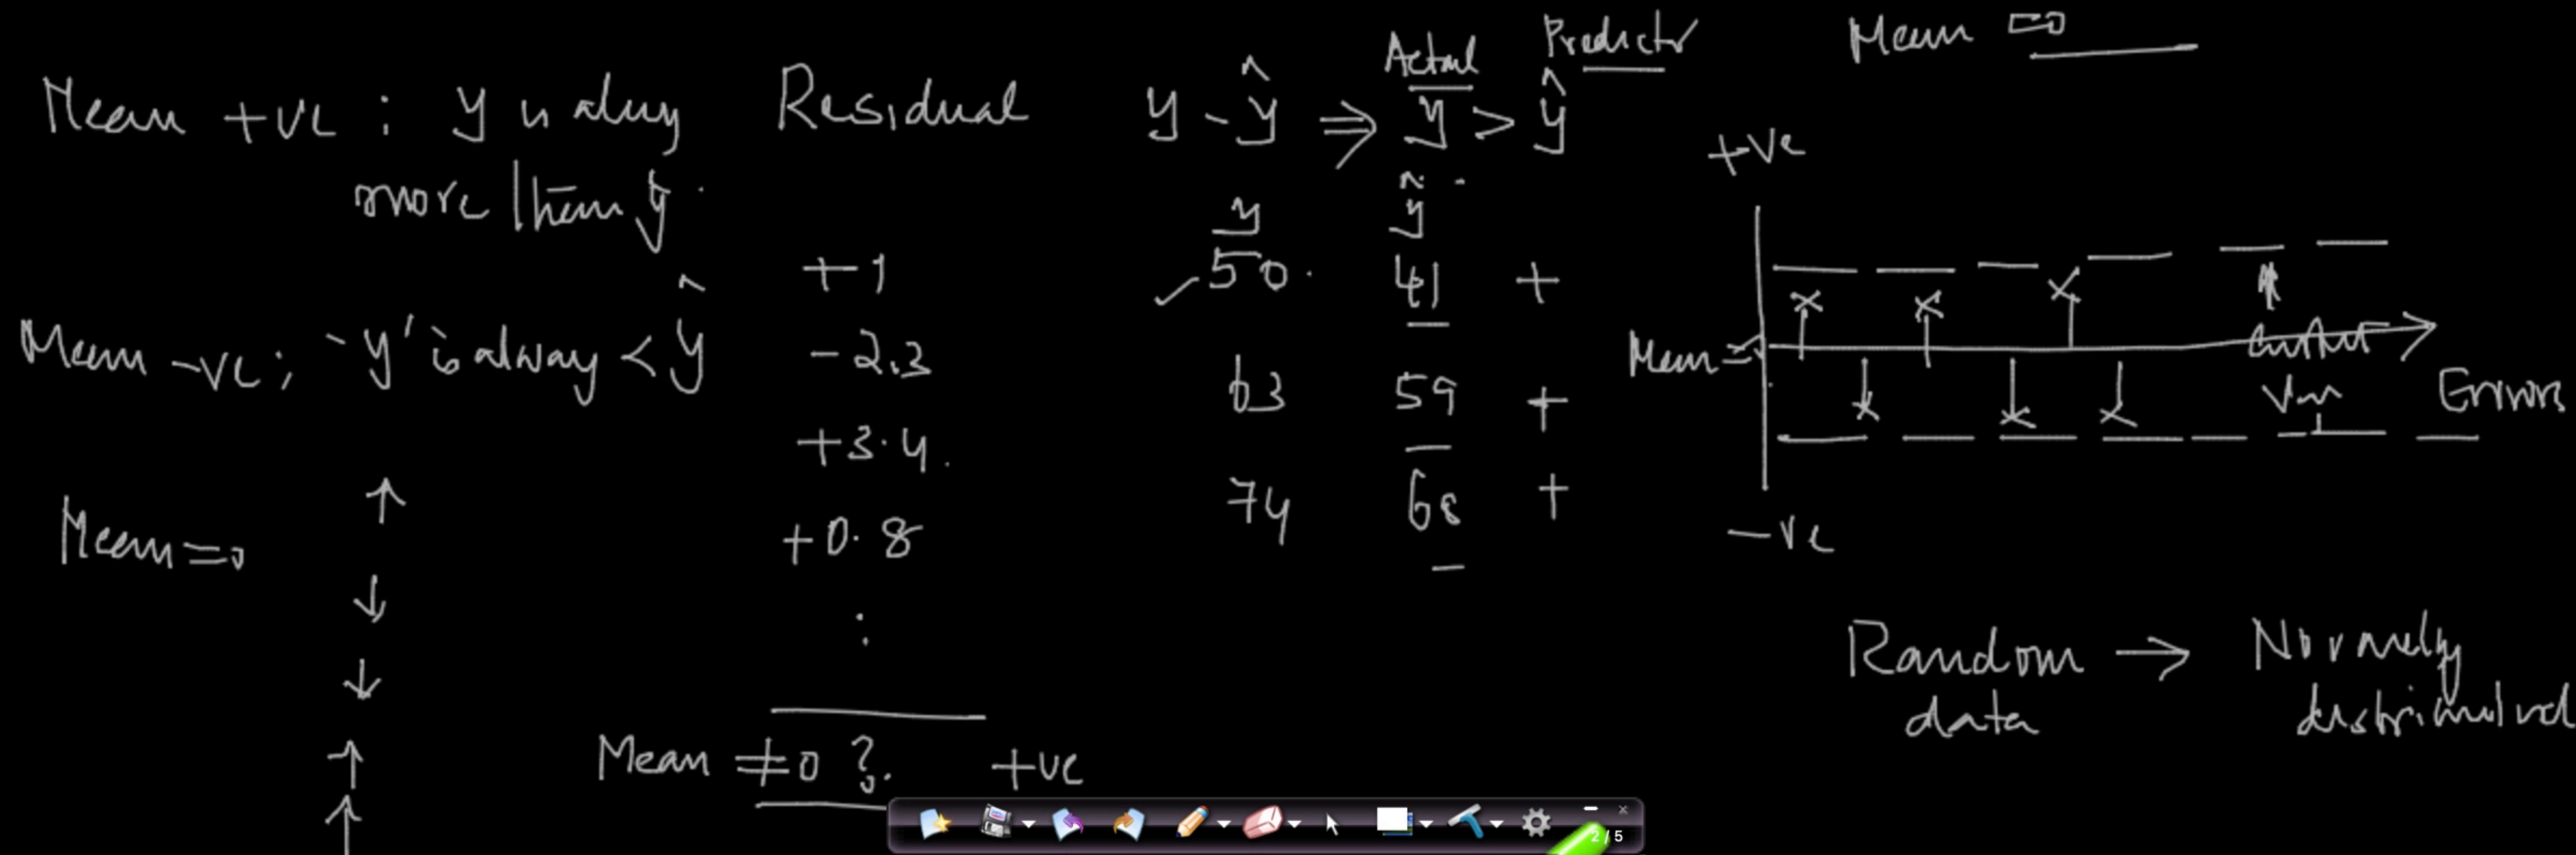 Mean +ve : y is alway
more than ŷ
Mean -ve ; 'y' is alway < ŷ
Mean = 0
Residual
+1
-2.3
+3.4
+0.8
Mean ≠ 0 ? +ve
y - ŷ ⇒ y > ŷ
Actual Predictor
y ŷ
50 41 +
63 59 +
74 68 +
Mean = 0
+ve
Mean = 0
Errors
-ve
Random → Normally
data
2/5